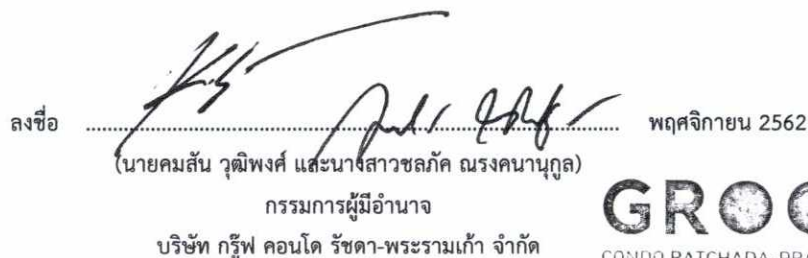 ลงชื่อ ........................................................................ พฤศจิกายน 2562
(นายคมสัน วุฒิพงศ์ และนางสาวชลภัค ณรงคนานุกูล)
กรรมการผู้มีอำนาจ
บริษัท กรู๊ฟ คอนโด รัชดา-พระรามเก้า จำกัด
GROO
CONDO RATCHADA